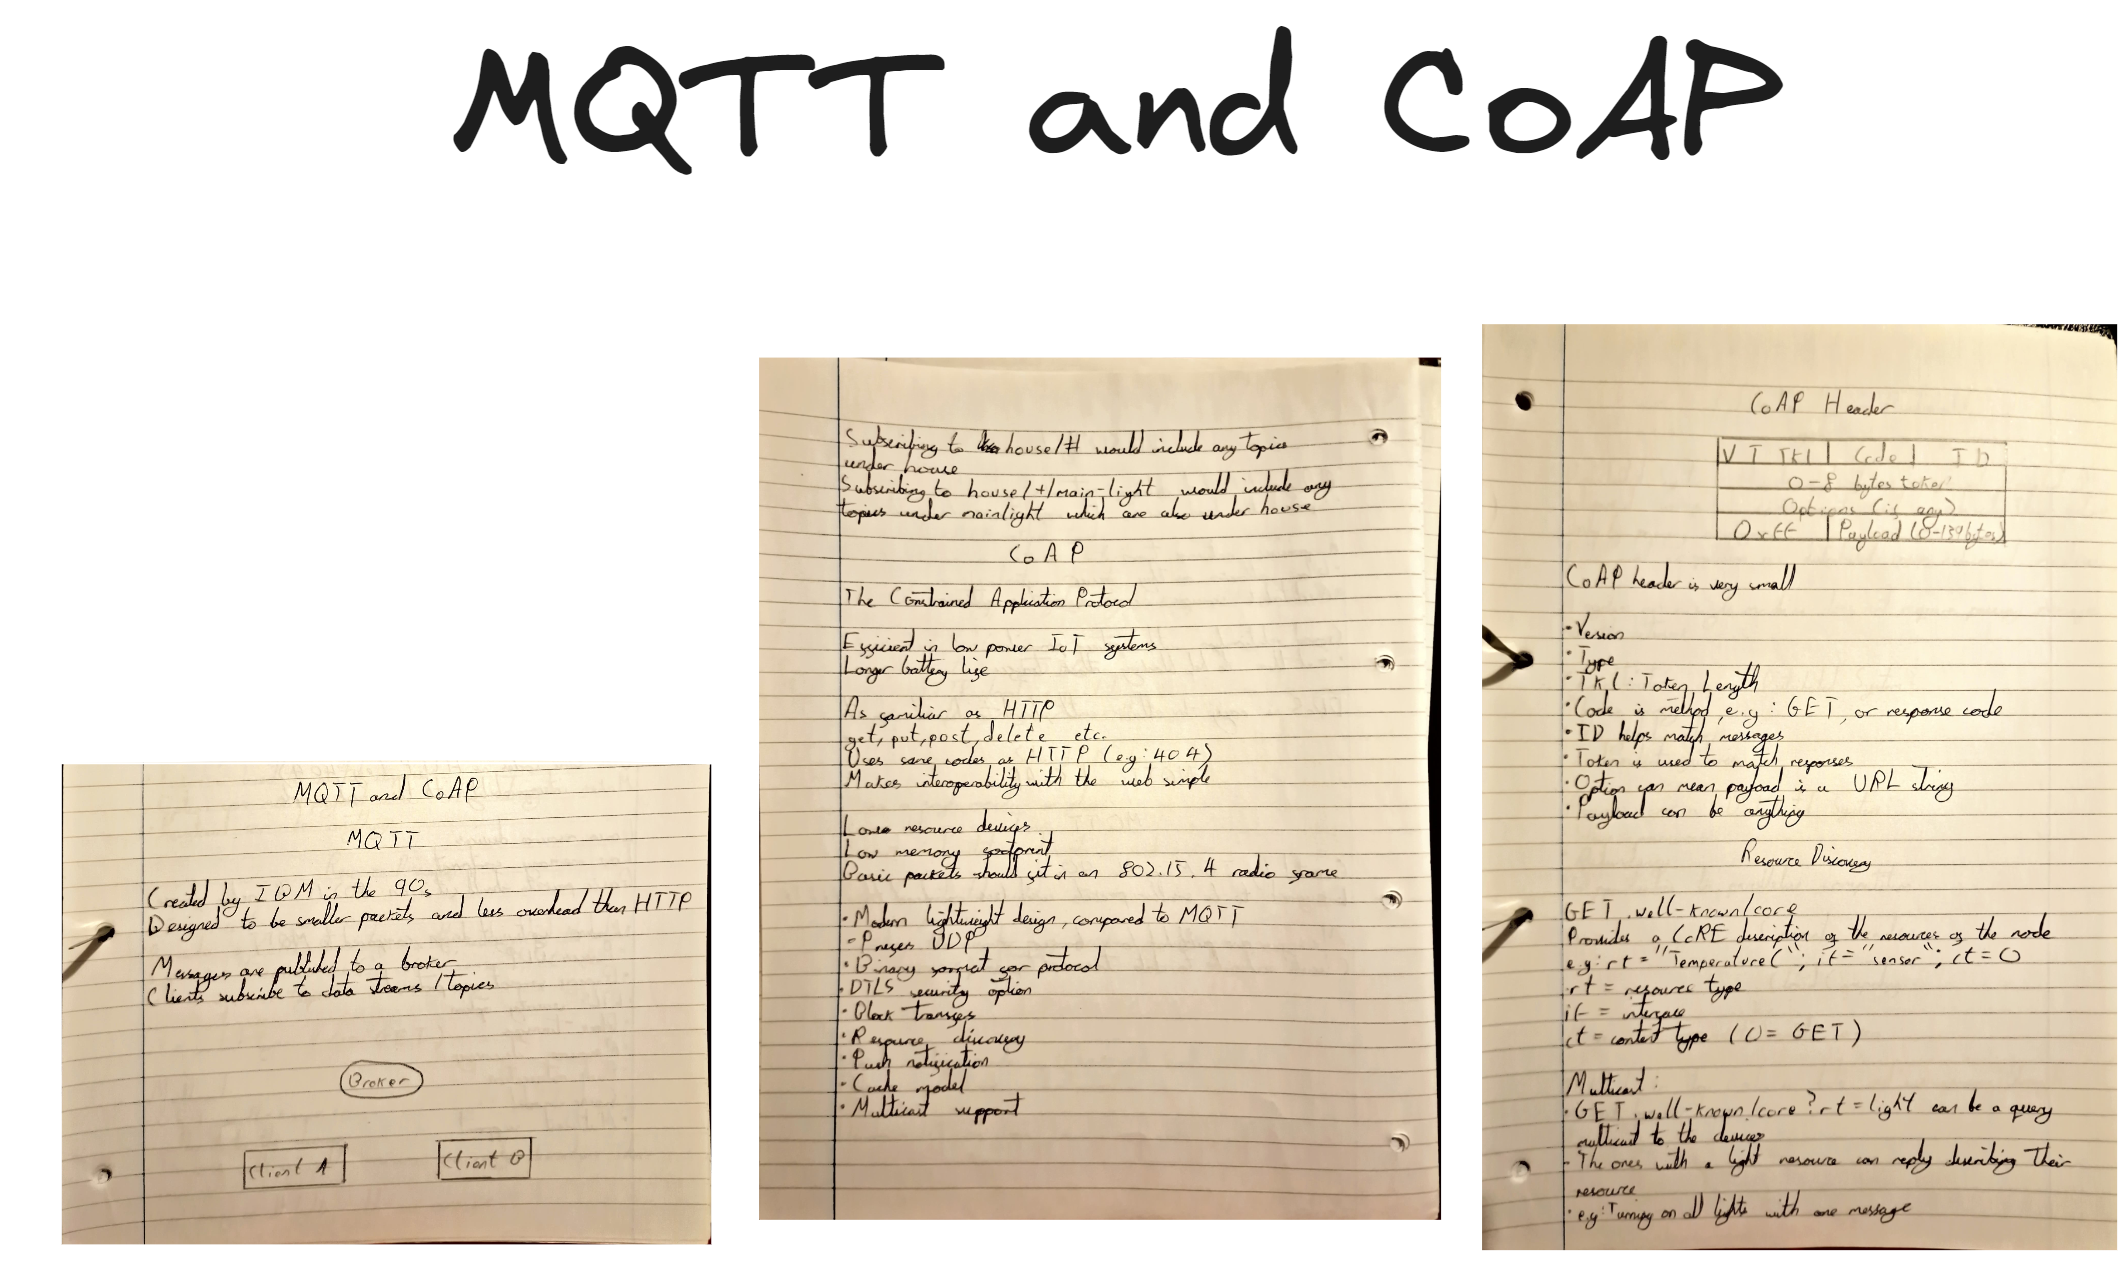 MQTT and CoAP
MQTT and CoAP
MQTT
Created by IBM in the 90s
Designed to be smaller packets and less overhead than HTTP
Messages are published to a broker
Clients subscribe to data streams / topics
Broker
Client A
Client B
Subscribing to house/# would include any topics
under house
Subscribing to house/+/main-light would include any
topics under mainlight which are also under house
CoAP
The Constrained Application Protocol
Efficient in low power IoT systems
Longer battery life
As familiar as HTTP
get, put, post, delete etc.
Uses same codes as HTTP (eg: 404)
Makes interoperability with the web simple
resource devices
Low memory footprint
Basic packets should fit in an 802.15.4 radio frame
· Modern lightweight design, compared to MQTT
· Prefers UDP
· Binary format for protocol
· DTLS security option
· Block transfer
· Resource discovery
· Push notification
· Cache model
· Multicast support
CoAP Header
V T TKL | Code | ID
0-8 bytes token
Options (if any)
0xFF | Payload (0-139 bytes)
CoAP header is very small
· Version
· Type
· TKL: Token Length
· Code is method, e.g: GET, or response code
· ID helps match messages
· Token is used to match responses
· Option can mean payload is a URL string
· Payload can be anything
Resource Discovery
GET .well-known/core
Provides a CoRE description of the resources of the node
e.g: rt = "Temperature C"; if = "sensor"; ct = 0
rt = resource type
if = interface
ct = content type (0 = GET)
Multicast:
· GET .well-known/core?rt=light can be a query
multicast to the devices
· The ones with a light resource can reply describing their
resource
· e.g: Turning on all lights with one message